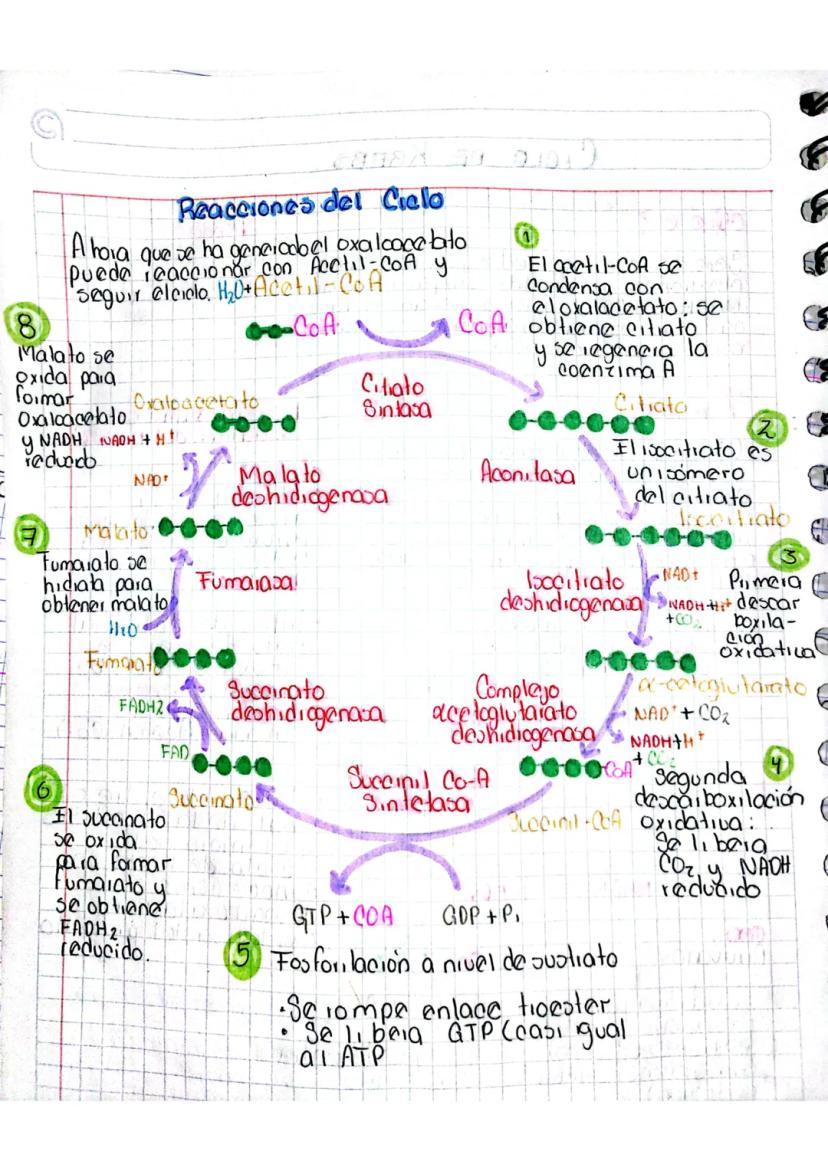 Reacciones del Ciclo
Ahora que se ha generado el oxalcacetato
puede reaccionar con Acetil-CoA y
seguir el ciclo. H₂O+Acetil-CoA
CoA
CoA
Citrato
Sintasa
1
El acetil-CoA se
condensa con
el oxalacetato: se
obtiene citrato
y se regenera la
coenzima A
Citrato
2
El isocitrato es
un isómero
del citrato
Aconitasa
Isocitrato
3
Primera
descar
boxila-
ción
oxidativa
Isocitrato
deshidrogenasa
NAD+
NADH+H+
+CO₂
α-cetoglutarato
Complejo
αcetoglutarato
deshidrogenasa
NAD+ + CO₂
NADH+H+
+ CO₂
CoA
4
Segunda
descarboxilación
oxidativa:
Se libera
CO₂ y NADH
reducido
Succinil-CoA
Succinil Co-A
Sintetasa
GTP + COA
GDP + Pi
5
Fosforilación a nivel de sustrato
• Se rompe enlace tioester
• Se libera GTP (casi igual
al ATP
Succinato
6
El succinato
se oxida
para formar
fumarato y
se obtiene
FADH₂
reducido.
Succinato
deshidrogenasa
FADH2
FAD
Fumarato
7
Fumarato se
hidrata para
obtener malato
H₂O
Fumarasa
Malato
8
Malato se
oxida para
formar
Oxaloacetato
y NADH
reducido
NADH + H+
NAD+
Malato
deshidrogenasa
Oxaloacetato